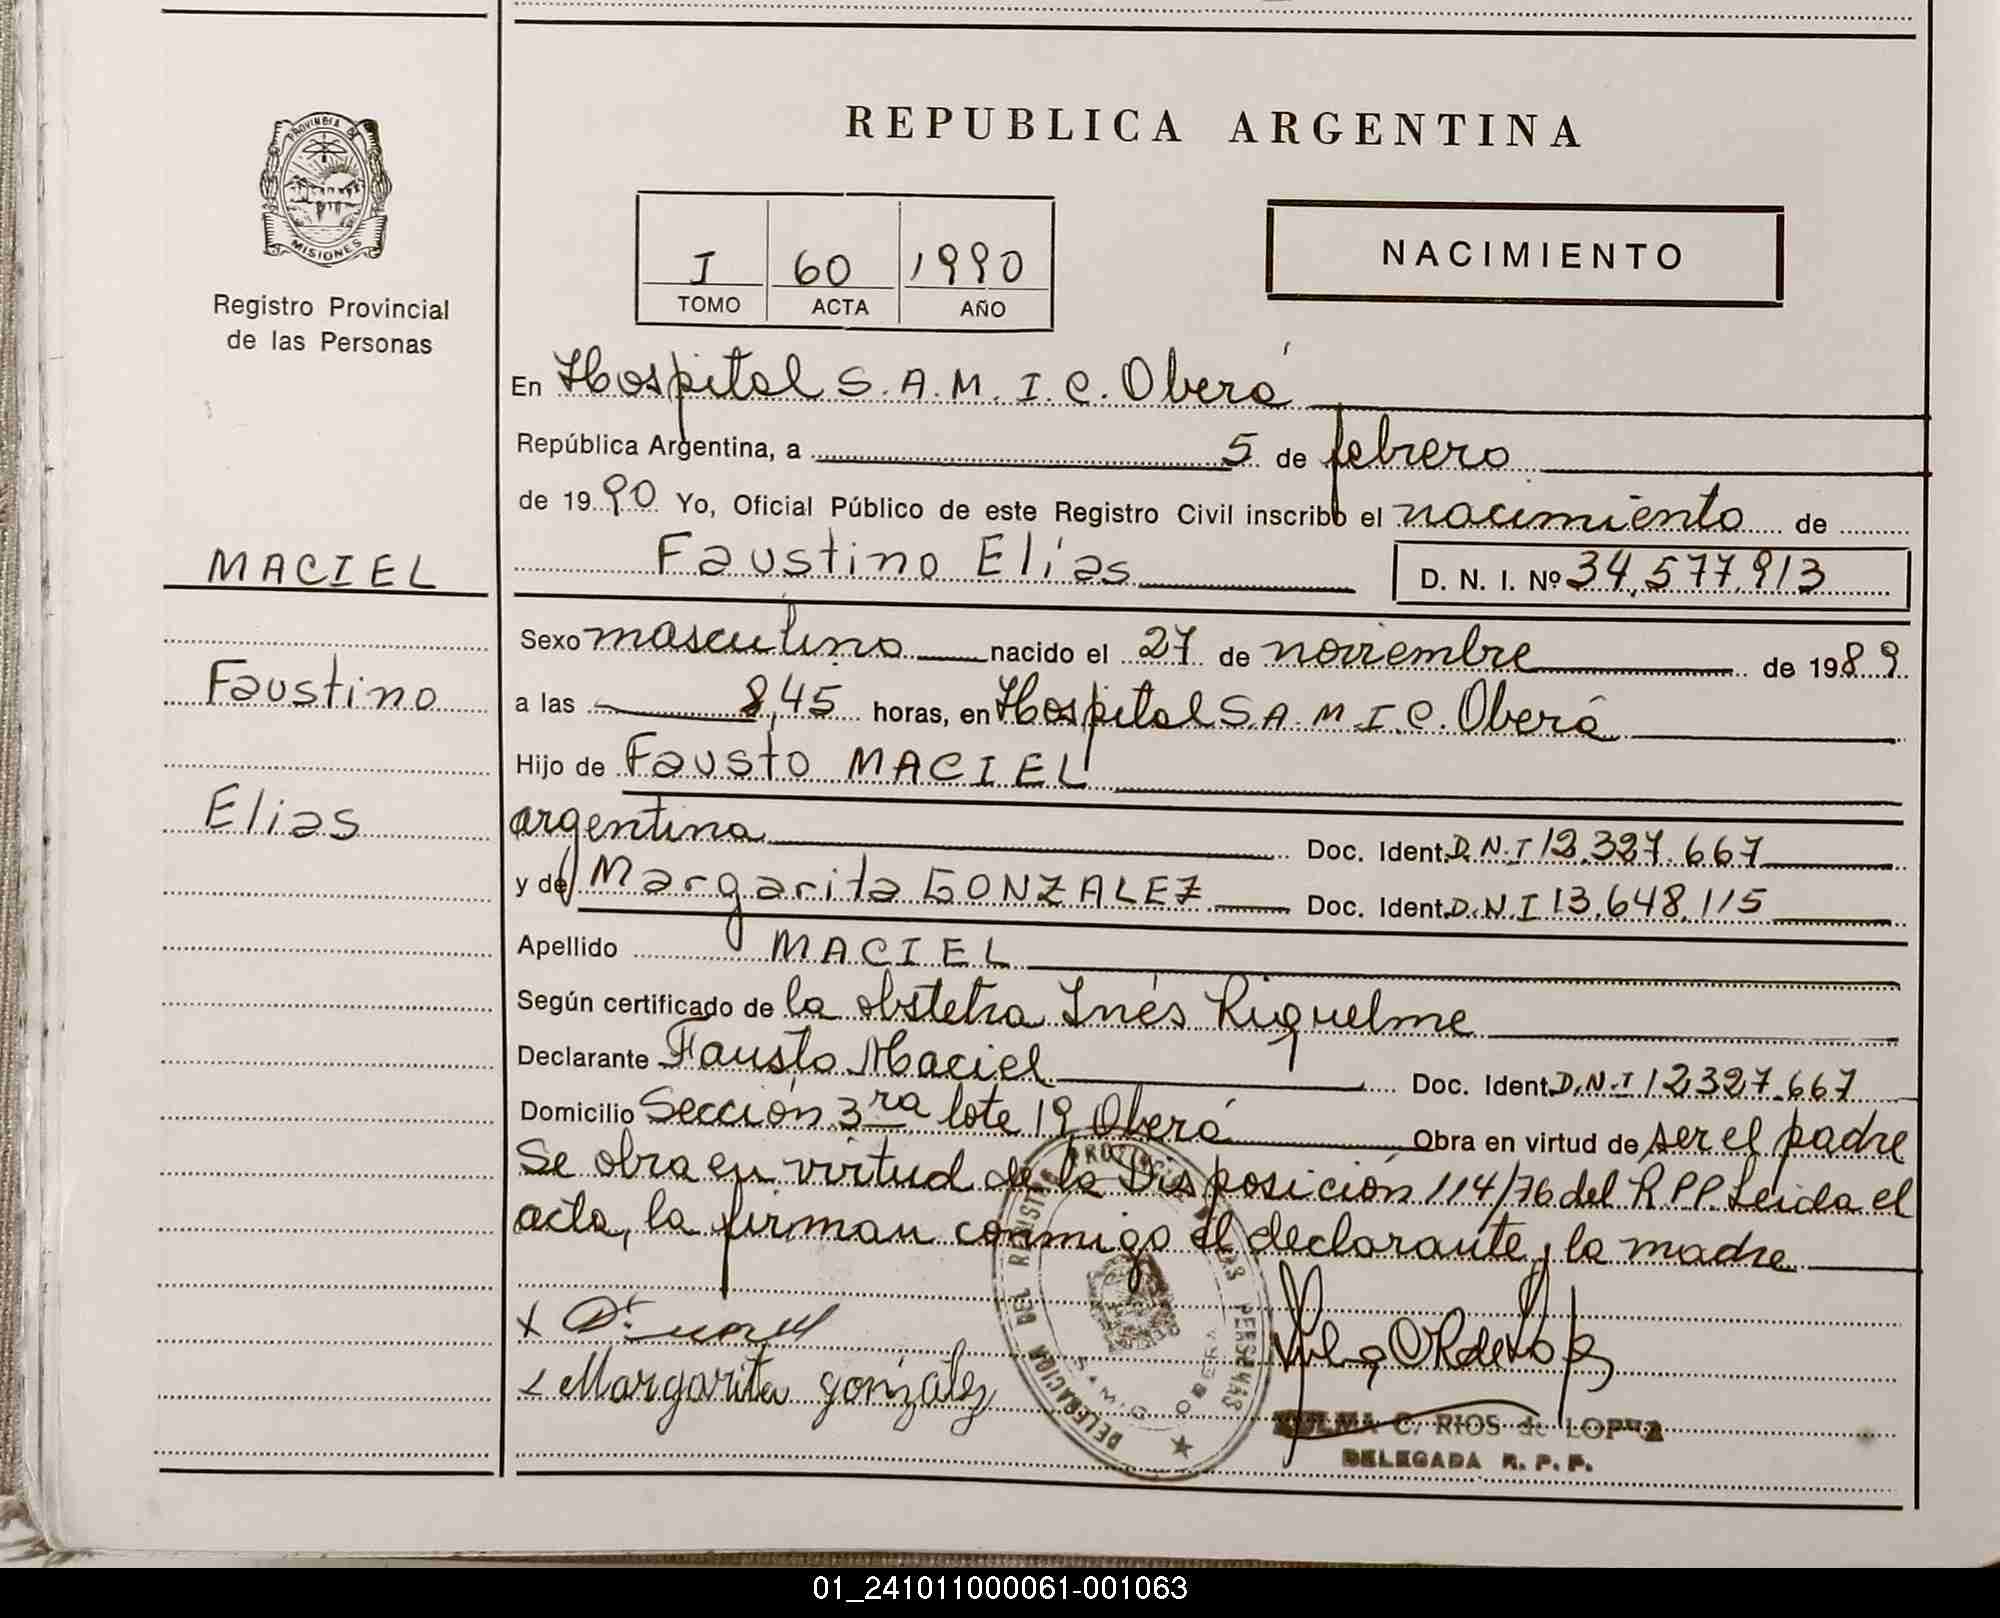 REPUBLICA ARGENTINA
PROVINCIA DE
MISIONES
Registro Provincial
de las Personas
I 60 1990
TOMO ACTA AÑO
NACIMIENTO
En Hospital S.A.M.I.C. Oberá
República Argentina, a 5 de febrero
de 1990 Yo, Oficial Público de este Registro Civil inscribo el nacimiento de
MACIEL
Faustino Elías D. N. I. Nº 34.577.913
Sexo masculino nacido el 27 de noviembre de 1989
Faustino
a las 8,45 horas, en Hospital S.A.M.I.C. Oberá
Hijo de Fausto MACIEL
Elias
argentina Doc. Ident. D.N.I 12.327.667
y de Margarita GONZALEZ Doc. Ident. D.N.I 13.648.115
Apellido MACIEL
Según certificado de la obstetra Inés Riquelme
Declarante Fausto Maciel Doc. Ident. D.N.I 12327.667
Domicilio Sección 3ra lote 19 Oberá Obra en virtud de ser el padre
Se obra en virtud de la Disposición 114/76 del R.P.P. Leida el
acta, la firman conmigo el declarante, la madre
x
Margarita gonzález
DELEGACION DEL REGISTRO PROVINCIAL DE LAS PERSONAS
S.A.M.I.C. OBERA
ZULMA C. RIOS de LOPEZ
DELEGADA R. P. P.
01_241011000061-001063